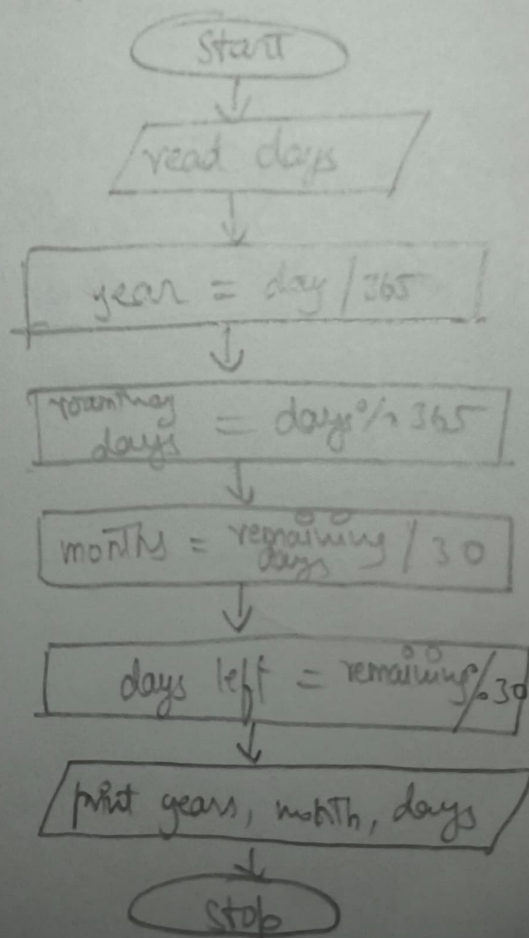 start
read days
year = day / 365
remaining
days = days % 365
months = remaining
days / 30
days left = remaining % 30
print years, month, days
stop